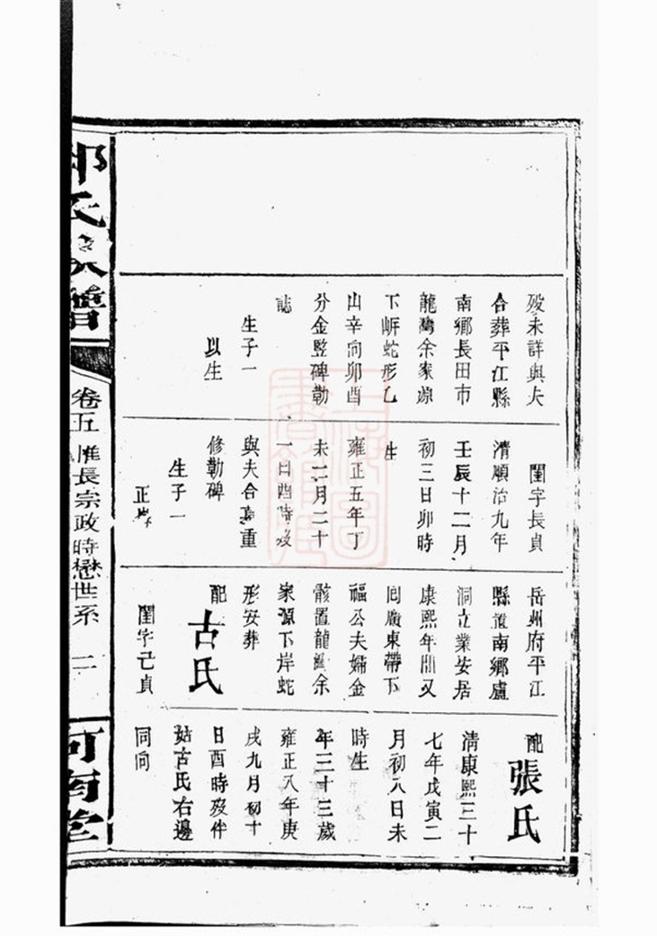 歿未詳與夫
合葬平江縣
南鄉長田市
龍灣余家源
下𡸁蛇形乙
山辛向卯酉
分金竪碑勒
誌
生子一
以生
閨字長貞
清順治九年
壬辰十二月
初三日卯時
生
雍正五年丁
未二月二十
一日酉時歿
與夫合墓重
修勒碑
生子一
正
岳州府平江
縣南鄉盧
洞立業安居
康熙年間又
回廣東帶下
福公夫婦金
骸置龍灣余
家源下岸蛇
形安葬
配
古氏
閨字己貞
配
張氏
清康熙三十
七年戊寅二
月初八日未
時生
年三十三歲
雍正八年庚
戌九月初十
日酉時歿伴
姑古氏右邊
同向
氏族譜
卷五 惟長宗政時懋世系 二
河南堂